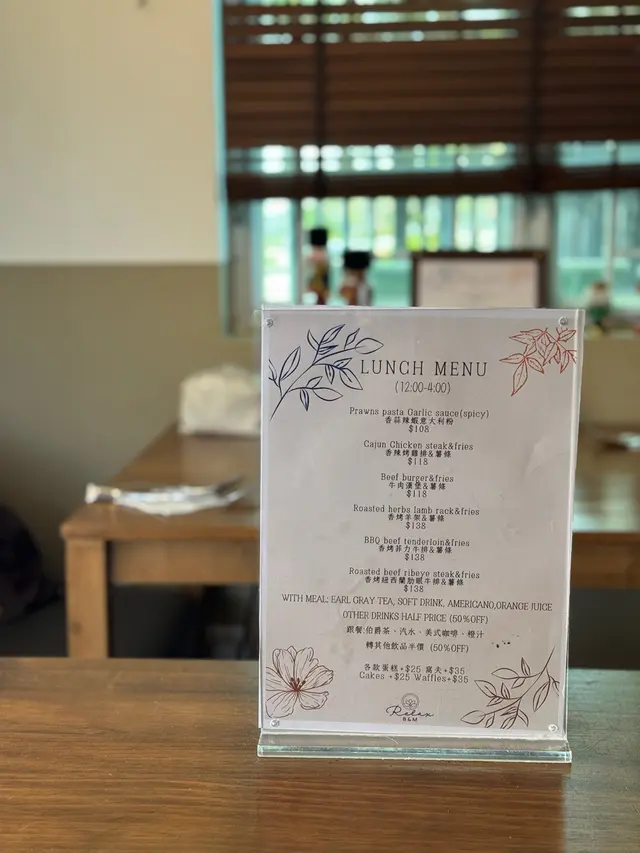 LUNCH MENU
(12:00-4:00)
Prawns pasta Garlic sauce(spicy)
香蒜辣蝦意大利粉
$108
Cajun Chicken steak&fries
香辣烤雞排&薯條
$118
Beef burger&fries
牛肉漢堡&薯條
$118
Roasted herbs lamb rack&fries
香烤羊架&薯條
$138
BBQ beef tenderloin&fries
香烤菲力牛排&薯條
$138
Roasted beef ribeye steak&fries
香烤紐西蘭肋眼牛排&薯條
$138
WITH MEAL: EARL GRAY TEA, SOFT DRINK, AMERICANO,ORANGE JUICE
OTHER DRINKS HALF PRICE (50%OFF)
跟餐:伯爵茶、汽水、美式咖啡、橙汁
轉其他飲品半價 (50%OFF)
各款蛋糕+$25 窩夫+$35
Cakes +$25 Waffles+$35
Relax
B&M